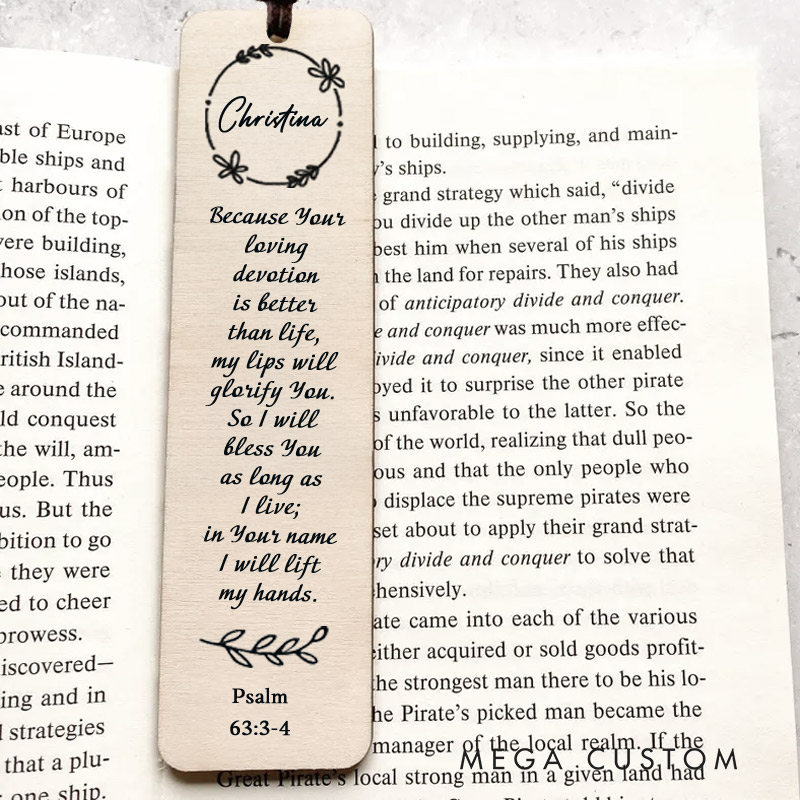 Christina
Because Your
loving
devotion
is better
than life,
my lips will
glorify You.
So I will
bless You
as long as
I live;
in Your name
I will lift
my hands.
Psalm
63:3-4
of Europe
ble ships and
harbours of
of the top-
vere building,
hose islands,
out of the na-
commanded
ritish Island-
around the
ld conquest
the will, am-
eople. Thus
us. But the
bition to go
they were
ed to cheer
prowess.
iscovered—
ing and in
strategies
that a plu-
one ship.
to building, supplying, and main-
y's ships.
grand strategy which said, “divide
ou divide up the other man’s ships
best him when several of his ships
the land for repairs. They also had
of anticipatory divide and conquer.
e and conquer was much more effec-
ivide and conquer, since it enabled
oyed it to surprise the other pirate
s unfavorable to the latter. So the
of the world, realizing that dull peo-
ous and that the only people who
displace the supreme pirates were
set about to apply their grand strat-
ry divide and conquer to solve that
hensively.
ate came into each of the various
either acquired or sold goods profit-
the strongest man there to be his lo-
he Pirate’s picked man became the
manager of the local realm. If the
Great Pirate’s local strong man in a given land had
MEGA CUSTOM